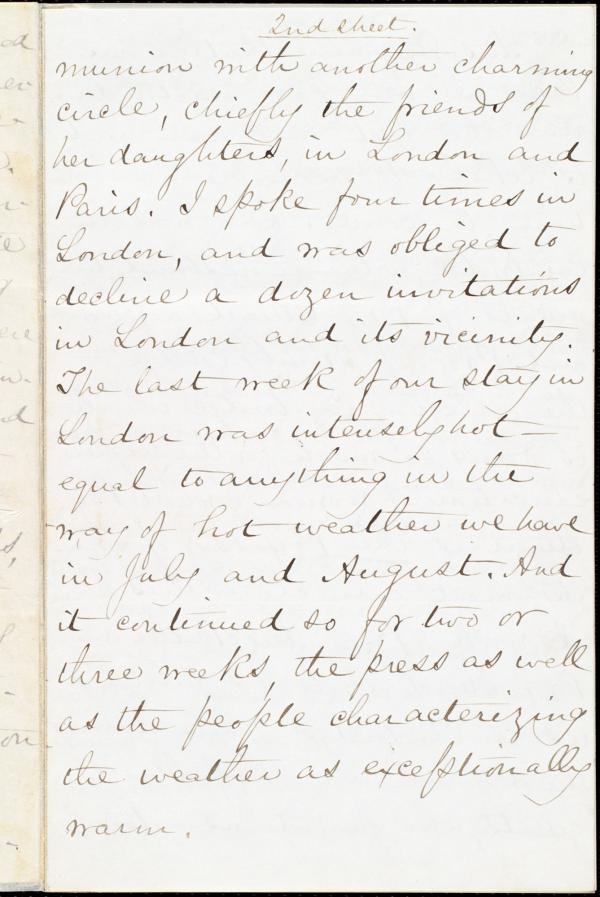 2nd sheet.
munion with another charming
circle, chiefly the friends of
her daughters, in London and
Paris. I spoke four times in
London, and was obliged to
decline a dozen invitations
in London and its vicinity.
The last week of our stay in
London was intensely hot –
equal to anything in the
way of hot weather we have
in July and August. And
it continued so for two or
three weeks, the press as well
as the people characterizing
the weather as exceptionally
warm.